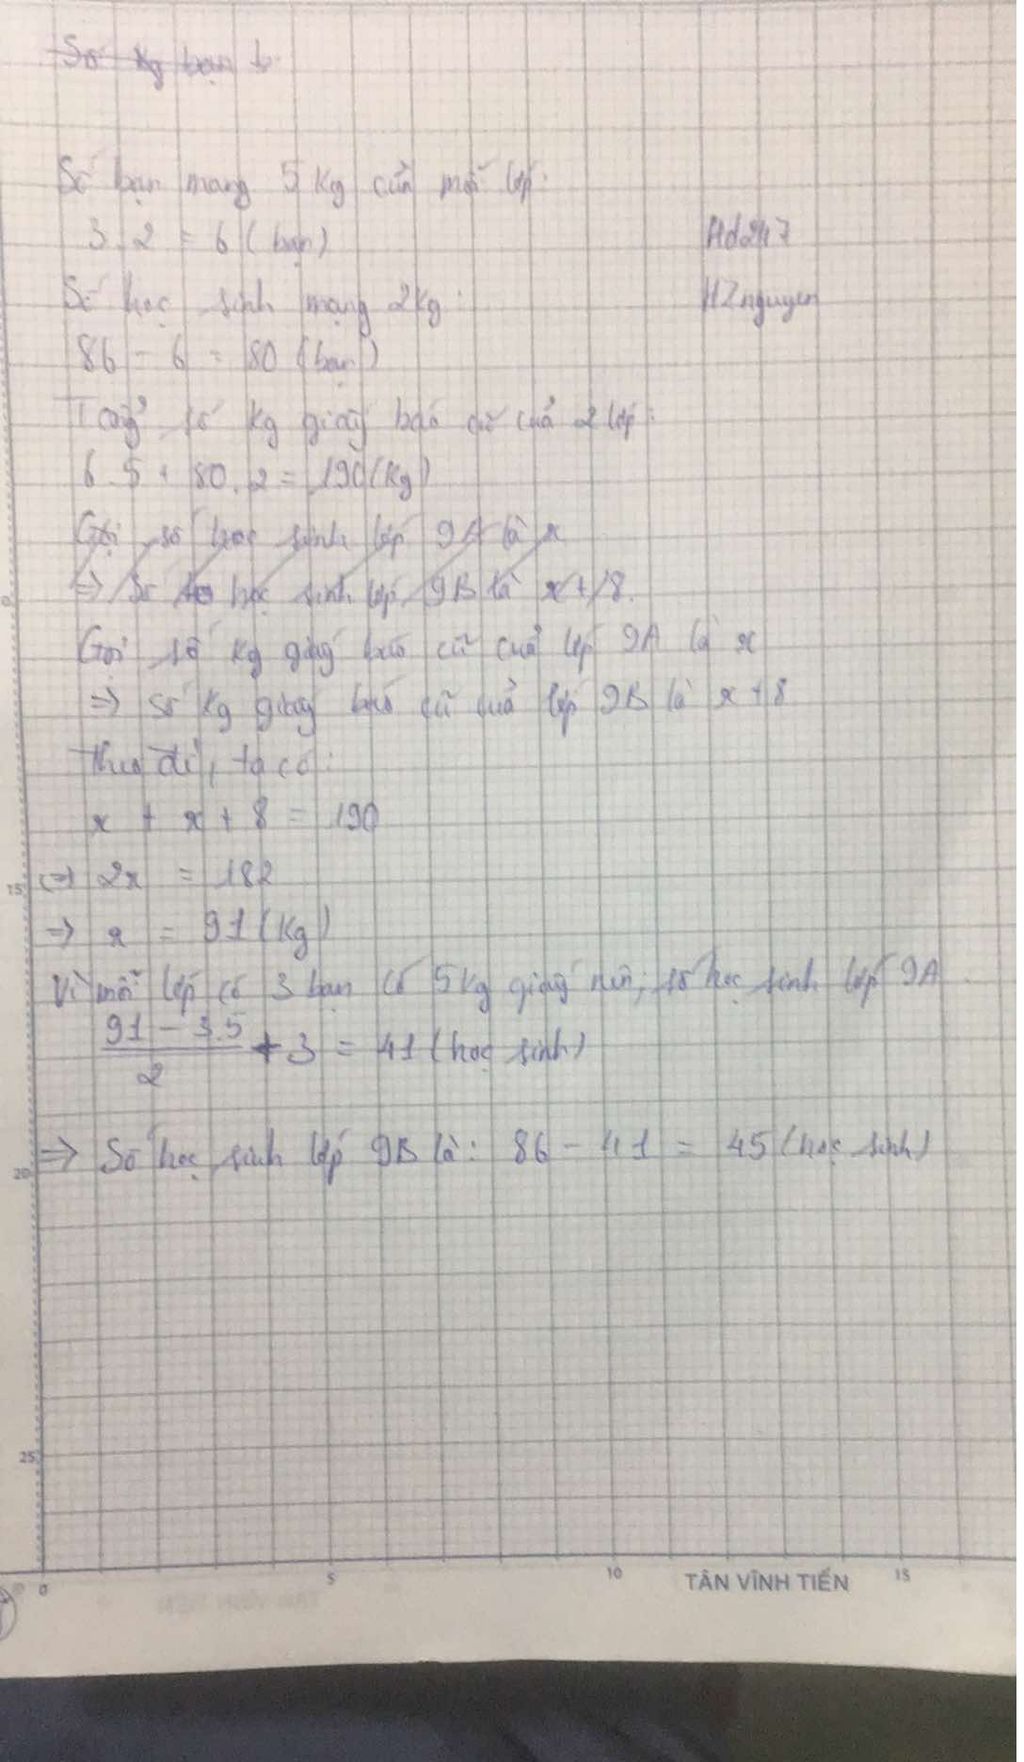 Số kg bạn
Số bạn mang 5 kg của mỗi lớp:
3.2 = 6 (bạn)
Hd247
Số học sinh mang 2kg:
HZnguyen
86 - 6 = 80 (bạn)
Tổng số kg giấy báo cũ của 2 lớp:
6.5 + 80.2 = 190 (kg)
Gọi số học sinh lớp 9A là x
=> Số học sinh lớp 9B là x + 8.
Gọi số kg giấy báo cũ của lớp 9A là x
=> số kg giấy báo cũ của lớp 9B là x + 8
Theo đề, ta có:
x + x + 8 = 190
<=> 2x = 182
=> x = 91 (kg)
Vì mỗi lớp có 3 bạn có 5kg giấy nên, số học sinh lớp 9A
91 - 3.5
+ 3 = 41 (học sinh)
2
=> Số học sinh lớp 9B là: 86 - 41 = 45 (học sinh)
15
20
25
0 5 10 TÂN VĨNH TIẾN 15